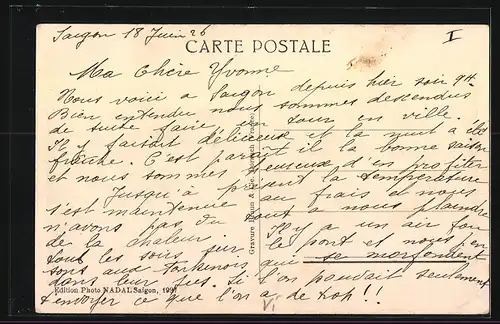 Saigon 18 Juin 26
I
CARTE POSTALE
Ma Chère Yvonne
Nous voici a Saigon depuis hier soir 9H.
Bien entendu nous sommes descendus
de suite faire un tour en ville.
Il y faisait délicieux et la nuit a été
fraîche. C'est paraît il la bonne saison
et nous sommes heureux d'en profiter
Jusqu'à présent la température
s'est maintenue au frais et nous
n'avons pas du tout a nous plaindre
de la chaleur Il y a un air fou
tous les soirs sur le pont et nous en
aux Tonkinois qui se morfondent
dans leur jus. Si l'on pouvait seulement
t'envoyer ce que l'on a de trop!!
Edition Photo NADAL Saigon,